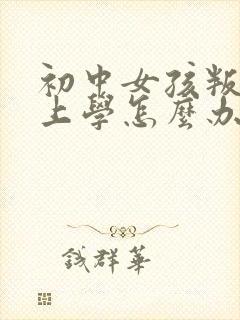 初中女孩叛
上學怎麼办
錢群華